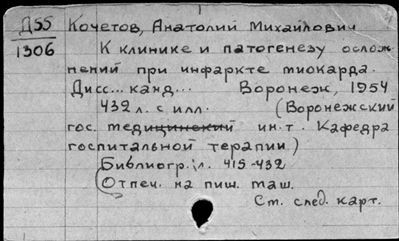 Д55 Кочетов, Анатолий Михайлович
1306 К клинике и патогенезу ослож-
нений при инфаркте миокарда.
Дисс... канд... Воронеж, 1954
432 л. с илл. (Воронежский
гос. медицинский ин-т. Кафедра
госпитальной терапии)
Библиогр.: л. 415-432
Отпеч. на пиш. маш.
См. след. карт.